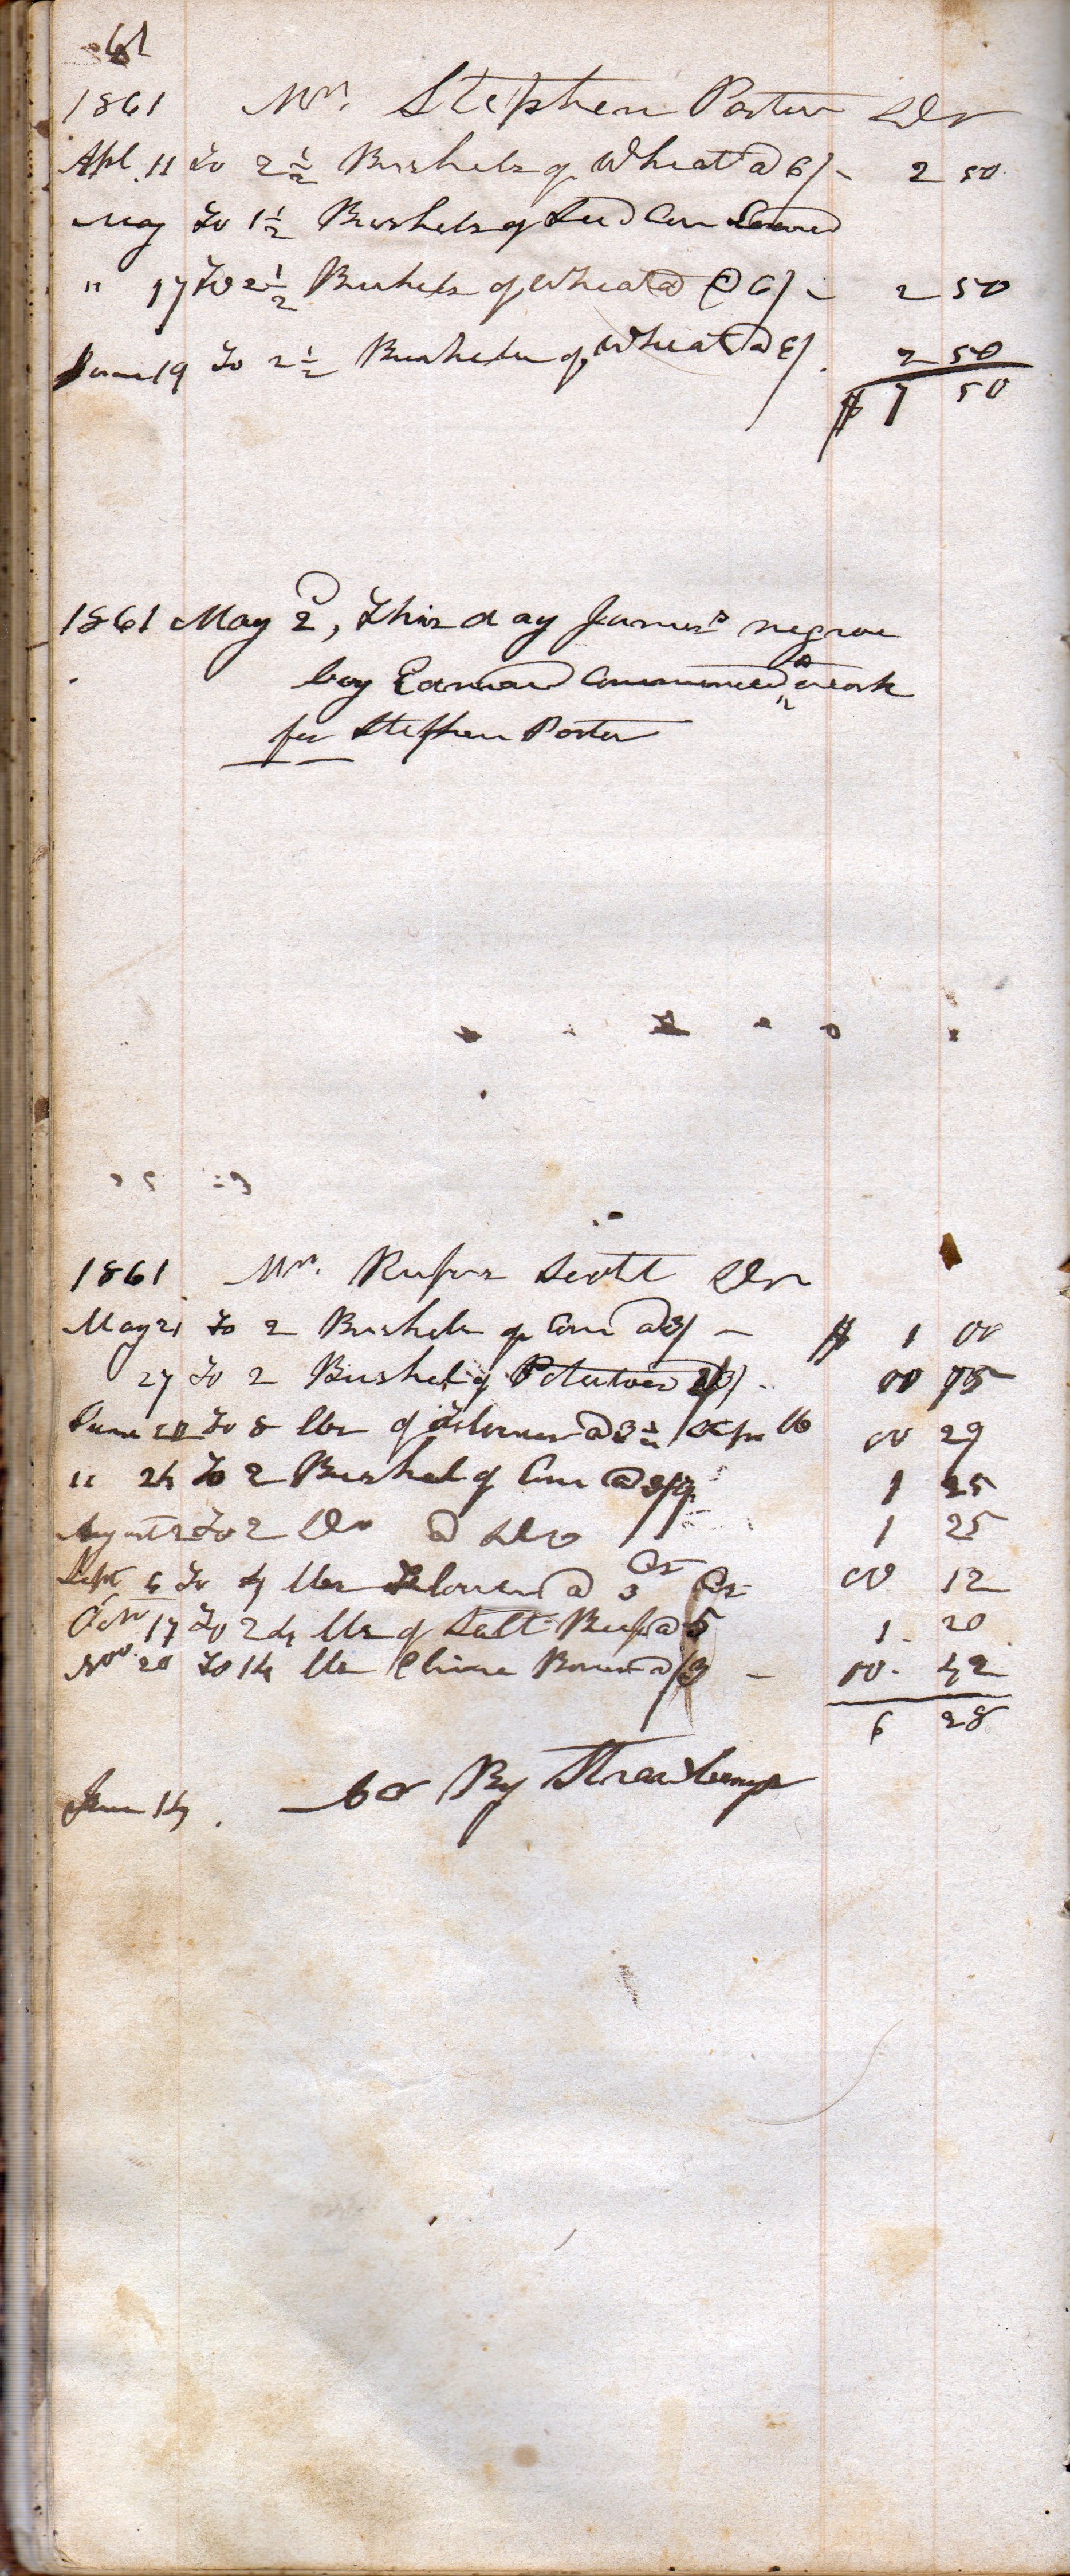 61
1861 Mr. Stephen Porter Dr
Apl. 11 To 2 1/2 Bushels of Wheat @ 6/- 2 50
May To 1 1/2 Bushels of Seed Corn
" 17 To 2 1/2 Bushels of Wheat @ 6/- 2 50
June 19 To 2 1/2 Bushels of Wheat @ 6/. 2 50
$ 7 50
1861 May 2, This day James's negroe
boy Edward Commenced to work
for Stephen Porter
1861 Mr. Rufus Scott Dr
May 21 To 2 Bushels of Corn @ 3/ - $ 1 00
27 To 2 Bushel of Potatoes /3/ - 00 75
June To 8 lbs of Flower @ 3 1/2 per lb 00 29
" 24 To 2 Bushel of Corn @ 3/9 1 25
August 2 To 2 Do @ Do 1 25
Sept 6 To 4 lbs Flower @ 3 Cts 00 12
Octr 17 To 24 lbs of Salt Beef @ 5 1. 20
Nov. 20 To 14 lbs Chine Bones @ /3 - 00. 42
6 28
June 14. Cr By Straw